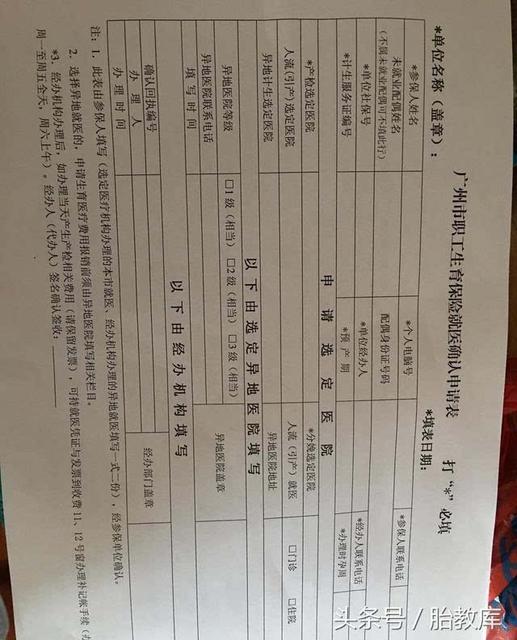 广州市职工生育保险就医确认申请表 打“*”必填
*单位名称（盖章）： *填表日期：
*参保人姓名 *个人电脑号 *参保人联系电话
未就业配偶姓名 配偶身份证号码
（不属未就业配偶可不填此行）
*单位社保号 *单位经办人 *经办人联系电话
*计生服务证编号 *预产期 *办理时孕周
申请选定医院
*产检选定医院 *分娩选定医院
人流(引产)选定医院 人流（引产）就医 □门诊 □住院
异地计生选定医院 异地医院地址
以下由选定异地医院填写
异地医院等级 □1级（相当） □2级（相当） □3级（相当） 异地医院盖章
异地医院联系电话
填写时间
以下由经办机构填写
确认回执编号 经办部门盖章
办理人
办理时间
注：1．此表由参保人填写（选定医疗机构办理的本市就医、经办机构办理的异地就医填写一式二份），经参保单位确认。
2．选择异地就医的，申请生育医疗费用报销前须由异地医院填写相关栏目。
*3．经办机构办理后，如办理当天产生产检相关费用（请保留发票），可持就医凭证与发票到收费11、12号窗办理补记帐手续（
周一至周五全天，周六上午）。经办人（代办人）签名确认签收：
头条号／胎教库